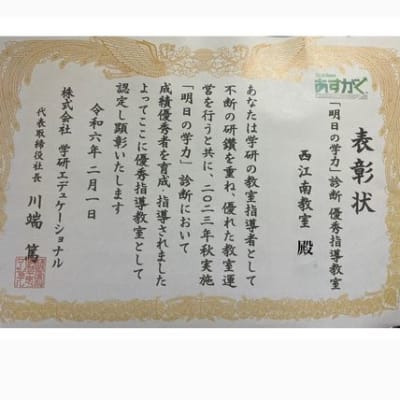 あすがく
表彰状
「明日の学力」診断 優秀指導教室
西江南教室 殿
あなたは学研の教室指導者として
不断の研鑽を重ね、優れた教室運
営を行うと共に、二〇二三年秋実施
「明日の学力」診断において
成績優秀者を育成・指導されました
よってここに優秀指導教室として
認定し顕彰いたします
令和六年二月一日
株式会社 学研エデュケーショナル
代表取締役社長 川端 篤